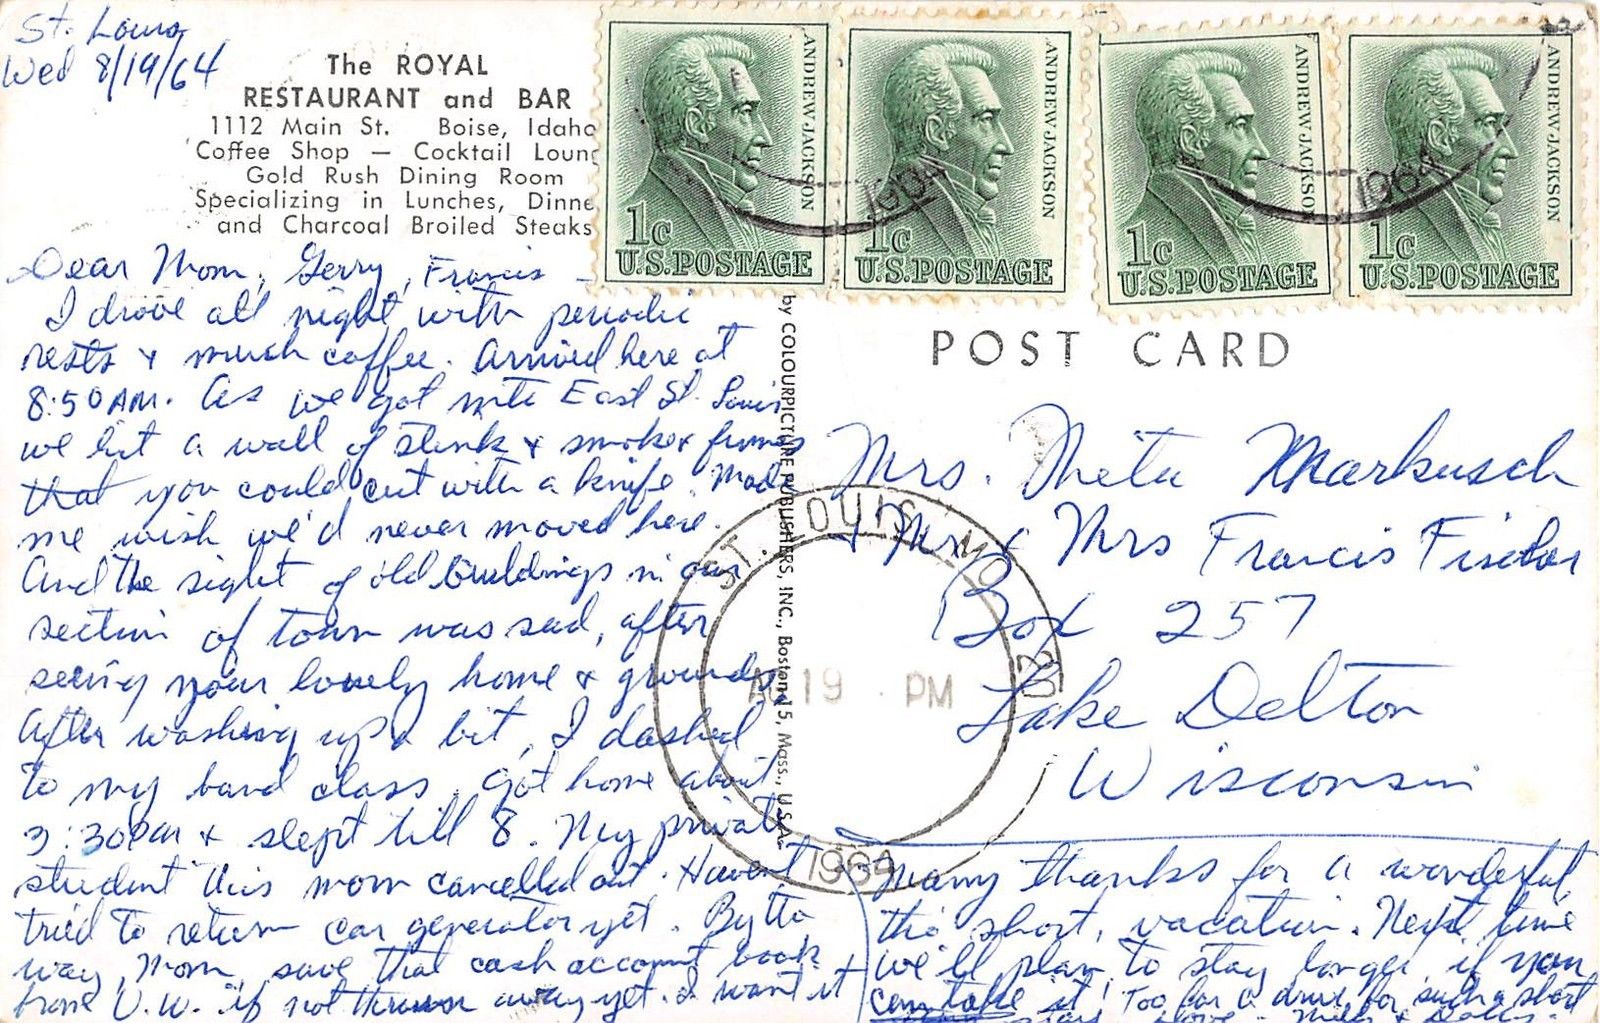 St. Louis
Wed 8/19/64
The ROYAL
RESTAURANT and BAR
1112 Main St. Boise, Idaho
Coffee Shop — Cocktail Loung
Gold Rush Dining Room
Specializing in Lunches, Dinne
and Charcoal Broiled Steaks
Dear Mom, Gerry, Francis –
I drove all night with periodic
rests & much coffee. Arrived here at
8:50 AM. As we got into East St. Louis
we hit a wall of stink & smoke & fumes
that you could cut with a knife. Made
me wish we'd never moved here.
And the sight of old buildings in our
section of town was sad, after
seeing your lovely home & grounds.
After washing up a bit, I dashed
to my band class. Got home about
3:30 PM & slept till 8. My private
student this morn cancelled out. Haven't
tried to return car generator yet. By the
way, Mom, save that cash account book
from U.W. if not thrown away yet. I want it
ANDREW JACKSON
1c
U.S. POSTAGE
ANDREW JACKSON
1c
U.S. POSTAGE
ANDREW JACKSON
1c
U.S. POSTAGE
ANDREW JACKSON
1c
U.S. POSTAGE
1964
1964
by COLOURPICTURE PUBLISHERS, INC., Boston 15, Mass., U.S.A.
POST CARD
ST. LOUIS, MO
19 PM
1964
Mrs. Meta Markusch
& Mr. & Mrs Francis Fischer
Box 257
Lake Delton
Wisconsin
Many thanks for a wonderful,
tho short, vacation. Next time
we'll plan to stay longer, if you
can take it! Too far a drive for such a short
stay. Love -